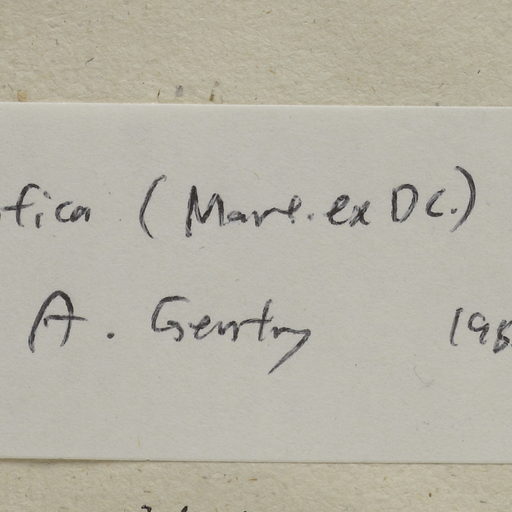 fica (Mart. ex DC.)
A. Gentry 198